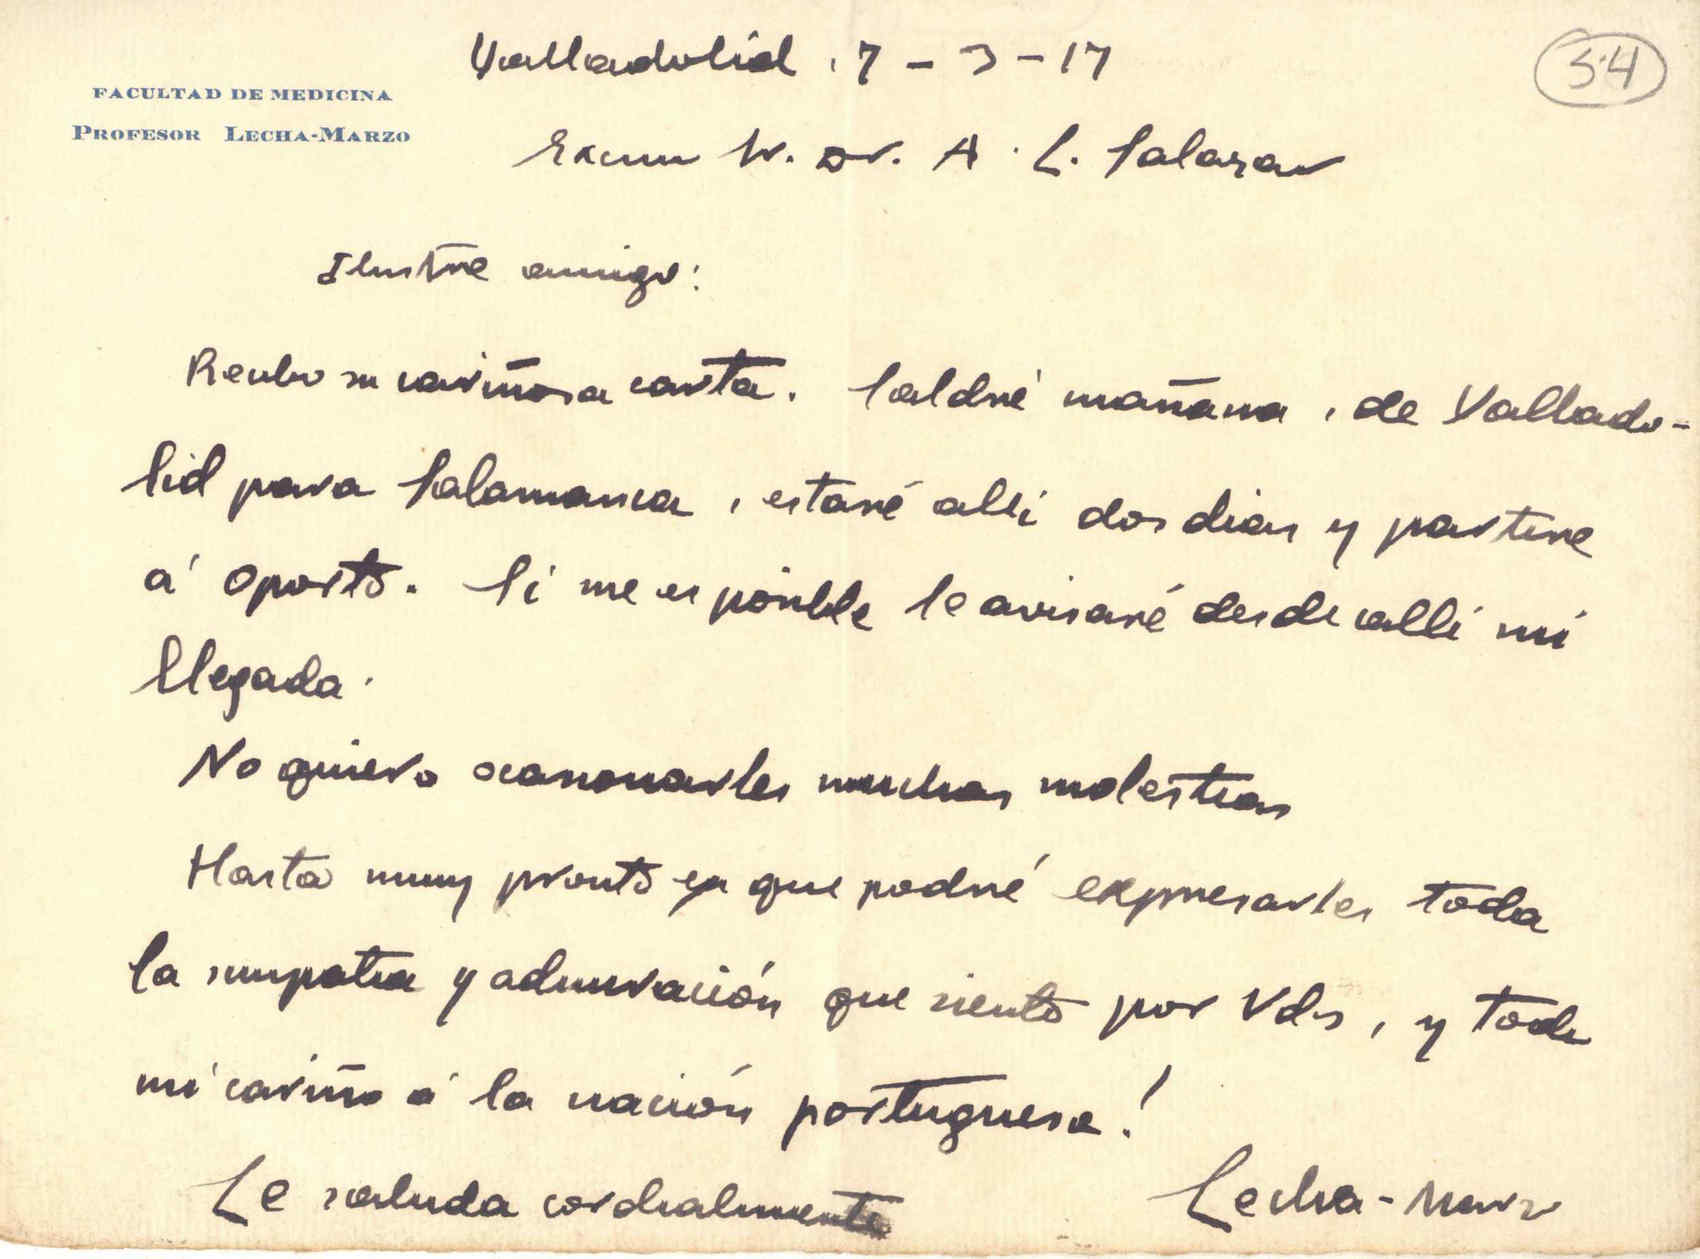 Valladolid, 7-3-17
34
FACULTAD DE MEDICINA
PROFESOR LECHA-MARZO
Excmo Sr. Dr. A. L. Salazar
Ilustre amigo:
Recibo su cariñosa carta. Saldré mañana, de Vallado-
lid para Salamanca, estaré allí dos dias y partire
á Oporto. Si me es posible le avisaré desde allí mi
llegada.
No quiero ocasionarles muchas molestias
Hasta muy pronto en que podré expresarles toda
la simpatia y admiración que siento por Vds, y todo
mi cariño á la nación portuguesa!
Le saluda cordialmente
Lecha-Marzo